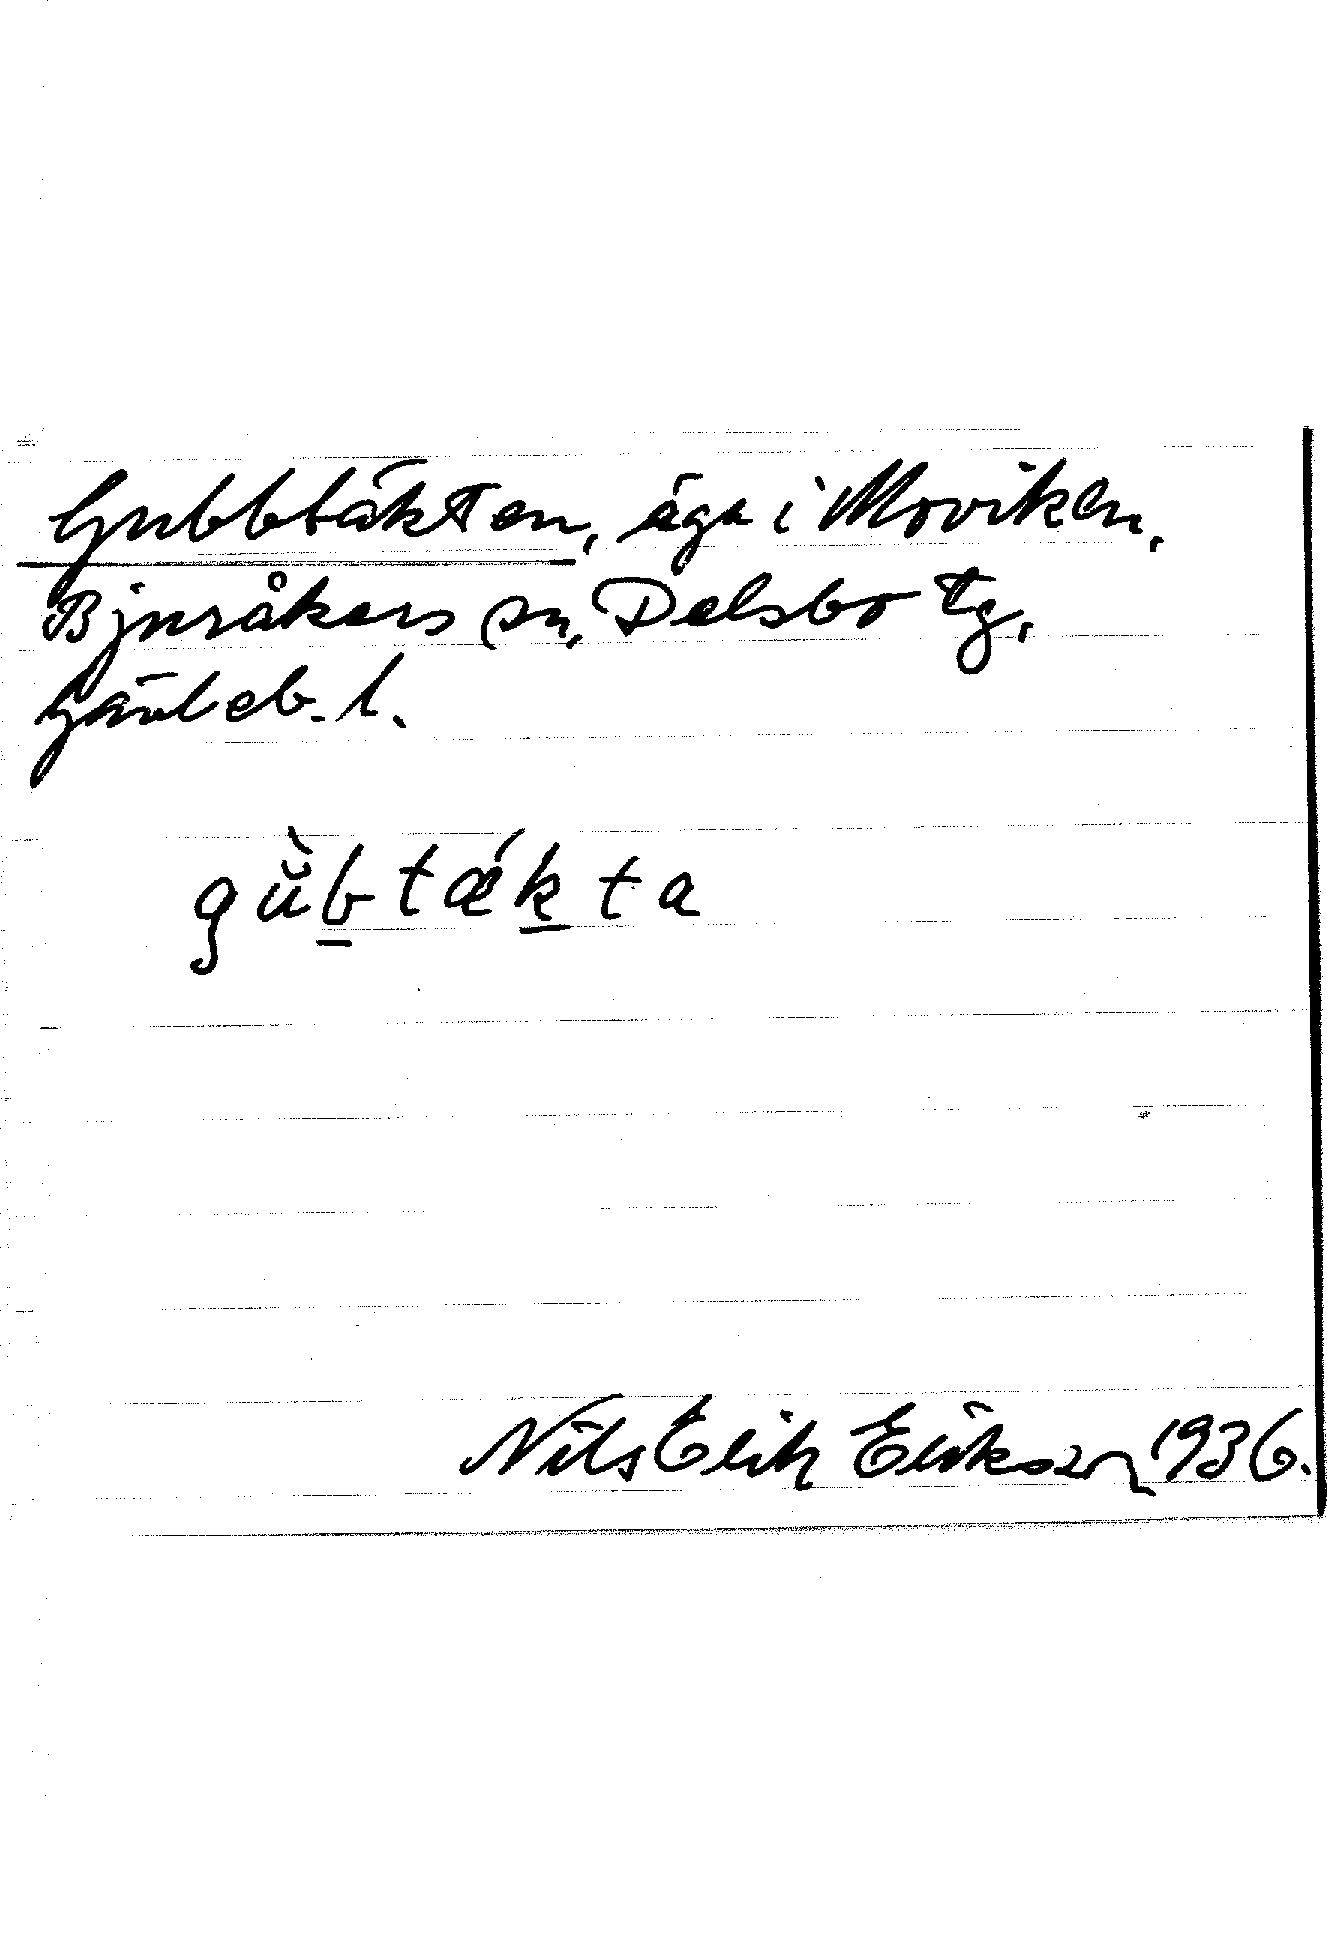 Gubbtäkten, äga i Moviken,
Bjuråkers sn, Delsbo tg,
Gävleb. l.
gùbtǽkta
Nils Erik Eriksson 1936.